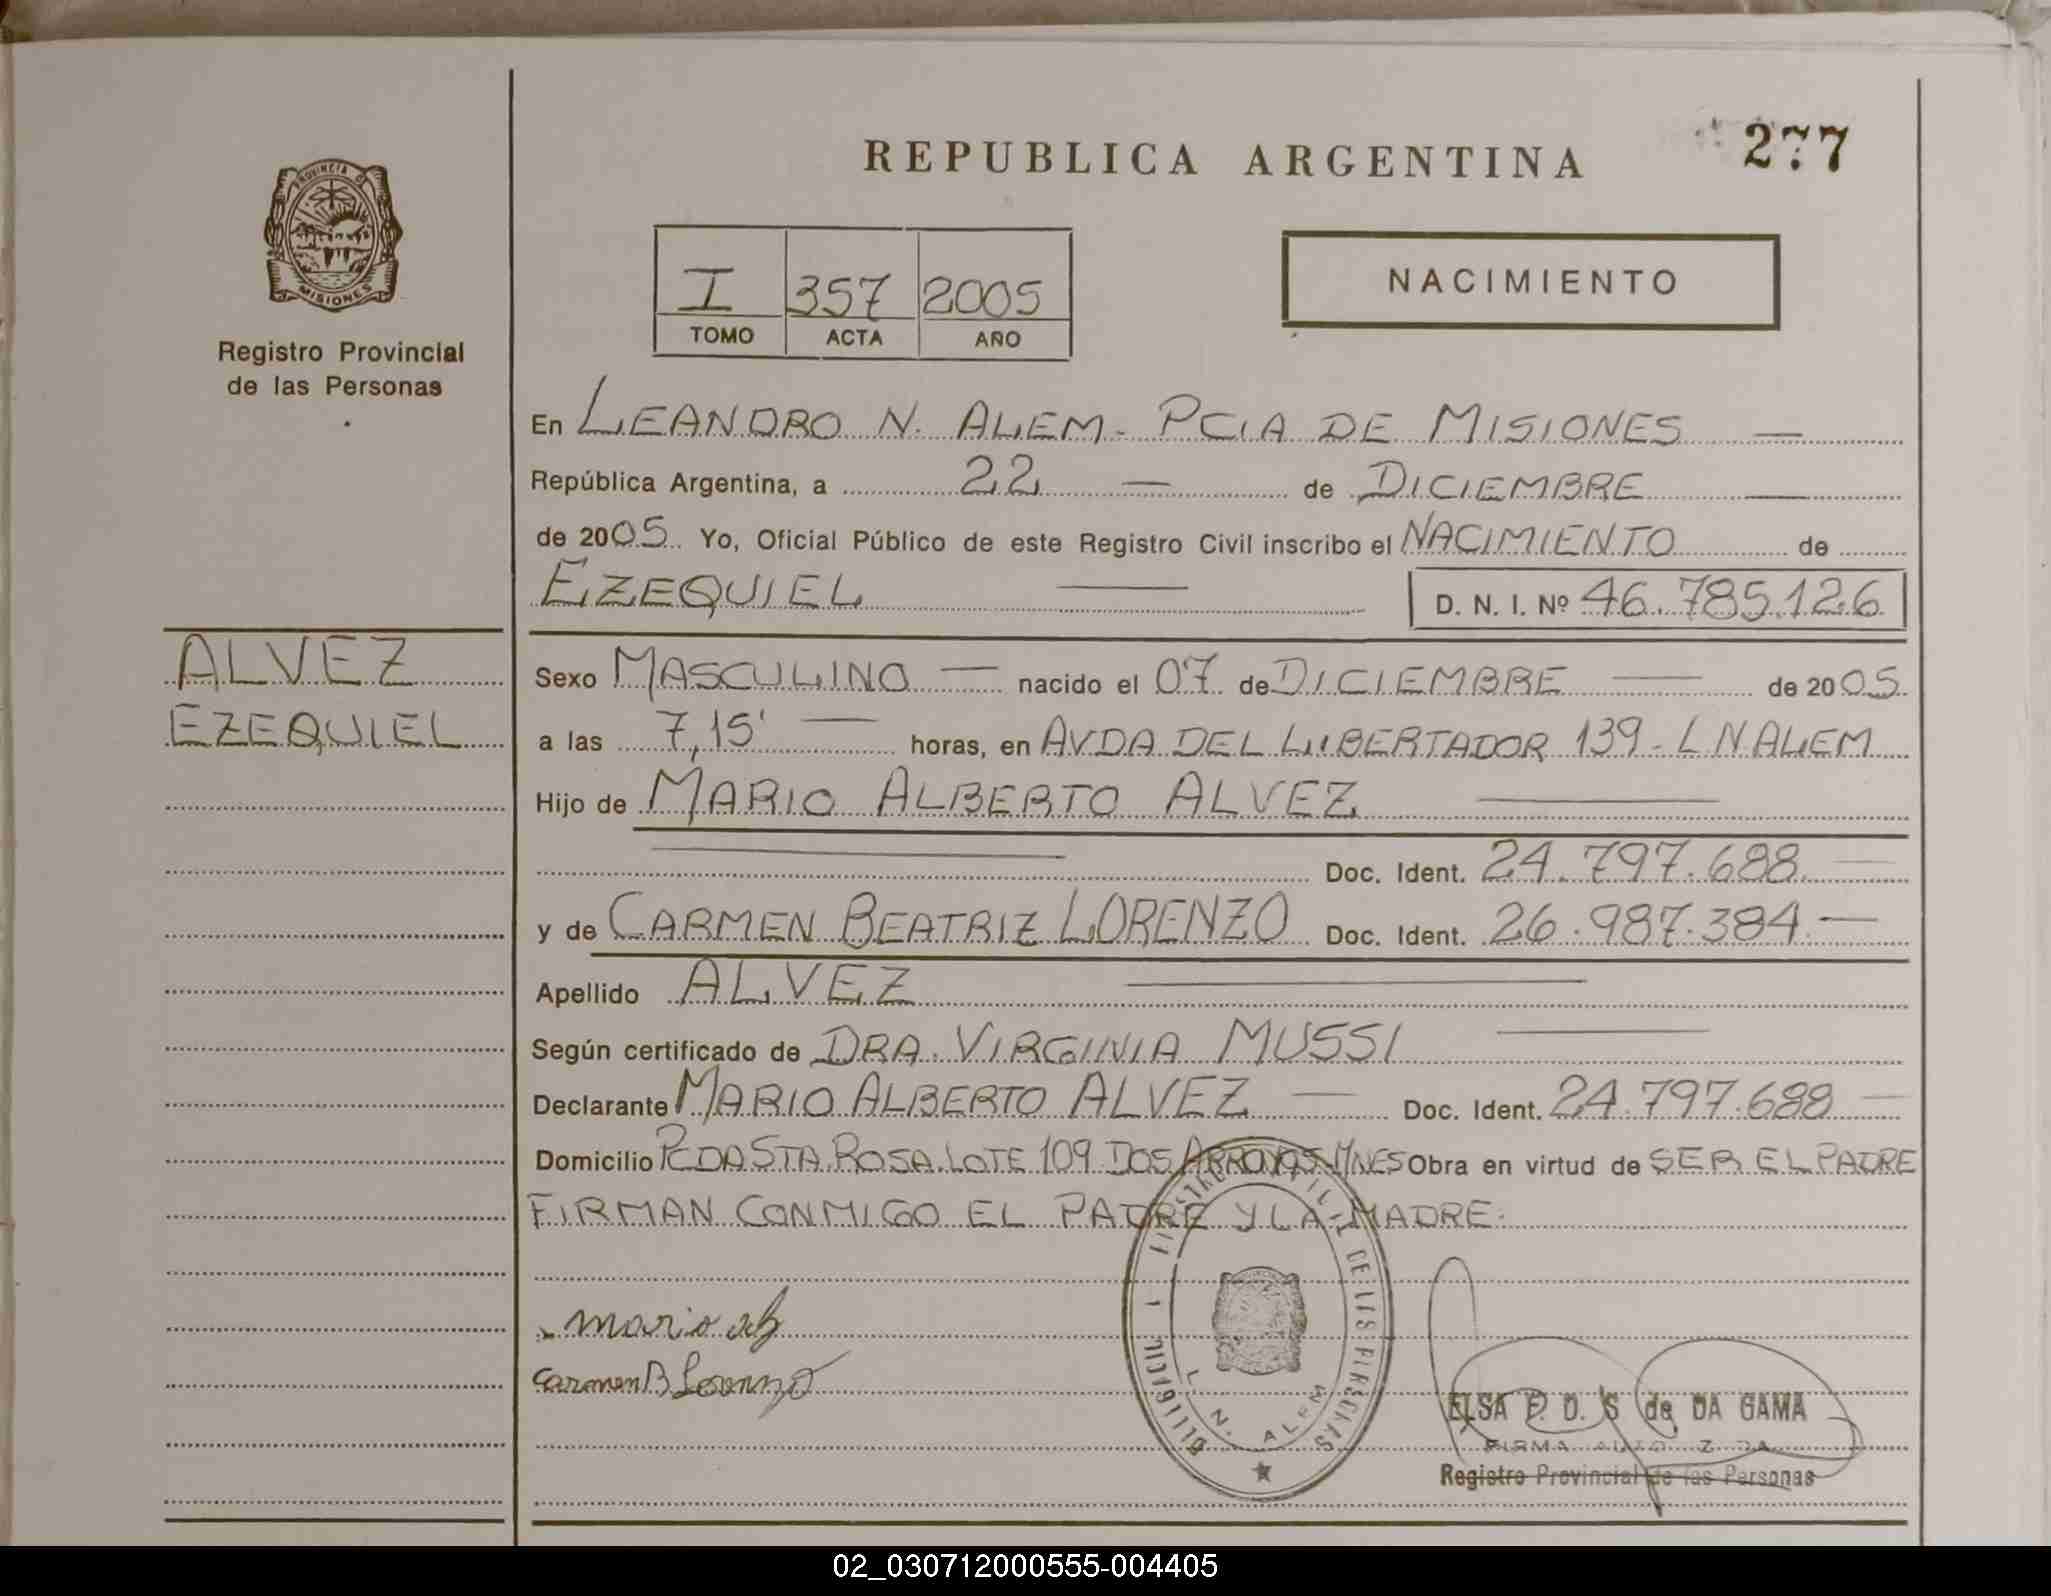 REPUBLICA ARGENTINA
277
PROVINCIA DE
MISIONES
Registro Provincial
de las Personas
I 357 2005
TOMO ACTA AÑO
NACIMIENTO
En LEANDRO N. ALEM - PCIA DE MISIONES —
República Argentina, a 22 — de DICIEMBRE —
de 2005 Yo, Oficial Público de este Registro Civil inscribo el NACIMIENTO de
EZEQUIEL — D. N. I. Nº 46.785.126
ALVEZ
EZEQUIEL
Sexo MASCULINO — nacido el 07 de DICIEMBRE — de 2005
a las 7,15' — horas, en AVDA DEL LIBERTADOR 139 - L N ALEM
Hijo de MARIO ALBERTO ALVEZ —
— Doc. Ident. 24.797.688 —
y de CARMEN BEATRIZ LORENZO Doc. Ident. 26.987.384 —
Apellido ALVEZ —
Según certificado de DRA. VIRGINIA MUSSI —
Declarante MARIO ALBERTO ALVEZ — Doc. Ident. 24.797.688 —
Domicilio PCDA STA ROSA LOTE 109 DOS ARROYOS-MNES Obra en virtud de SER EL PADRE
FIRMAN CONMIGO EL PADRE Y LA MADRE.
mario
Carmen B Lorenzo
L. N. ALEM
ELSA P. D. S de DA GAMA
Registro Provincial de las Personas
02_030712000555-004405